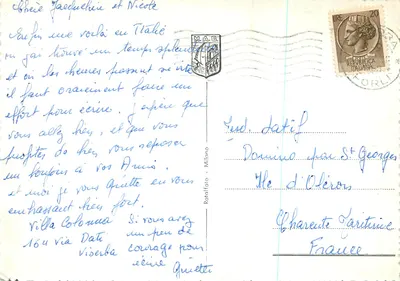 Chère Jacqueline et Nicole
Enfin me voilà en Italie
où j'ai trouvé un temps splendide
et où les heures passent si vite
il faut vraiment faire un
effort pour écrire. J'espère que
vous allez bien, et que vous
profitez de bien vous reposer
à vos Amis
et moi je vous quitte en vous
embrassant bien fort.
Villa Colonna
164 via Dati
Viserba
Si vous avez
un peu de
courage pour
écrire
Rotalfoto - Milano
Latif
Domino par St Georges
Ile d'Oléron
Charente Maritime
France